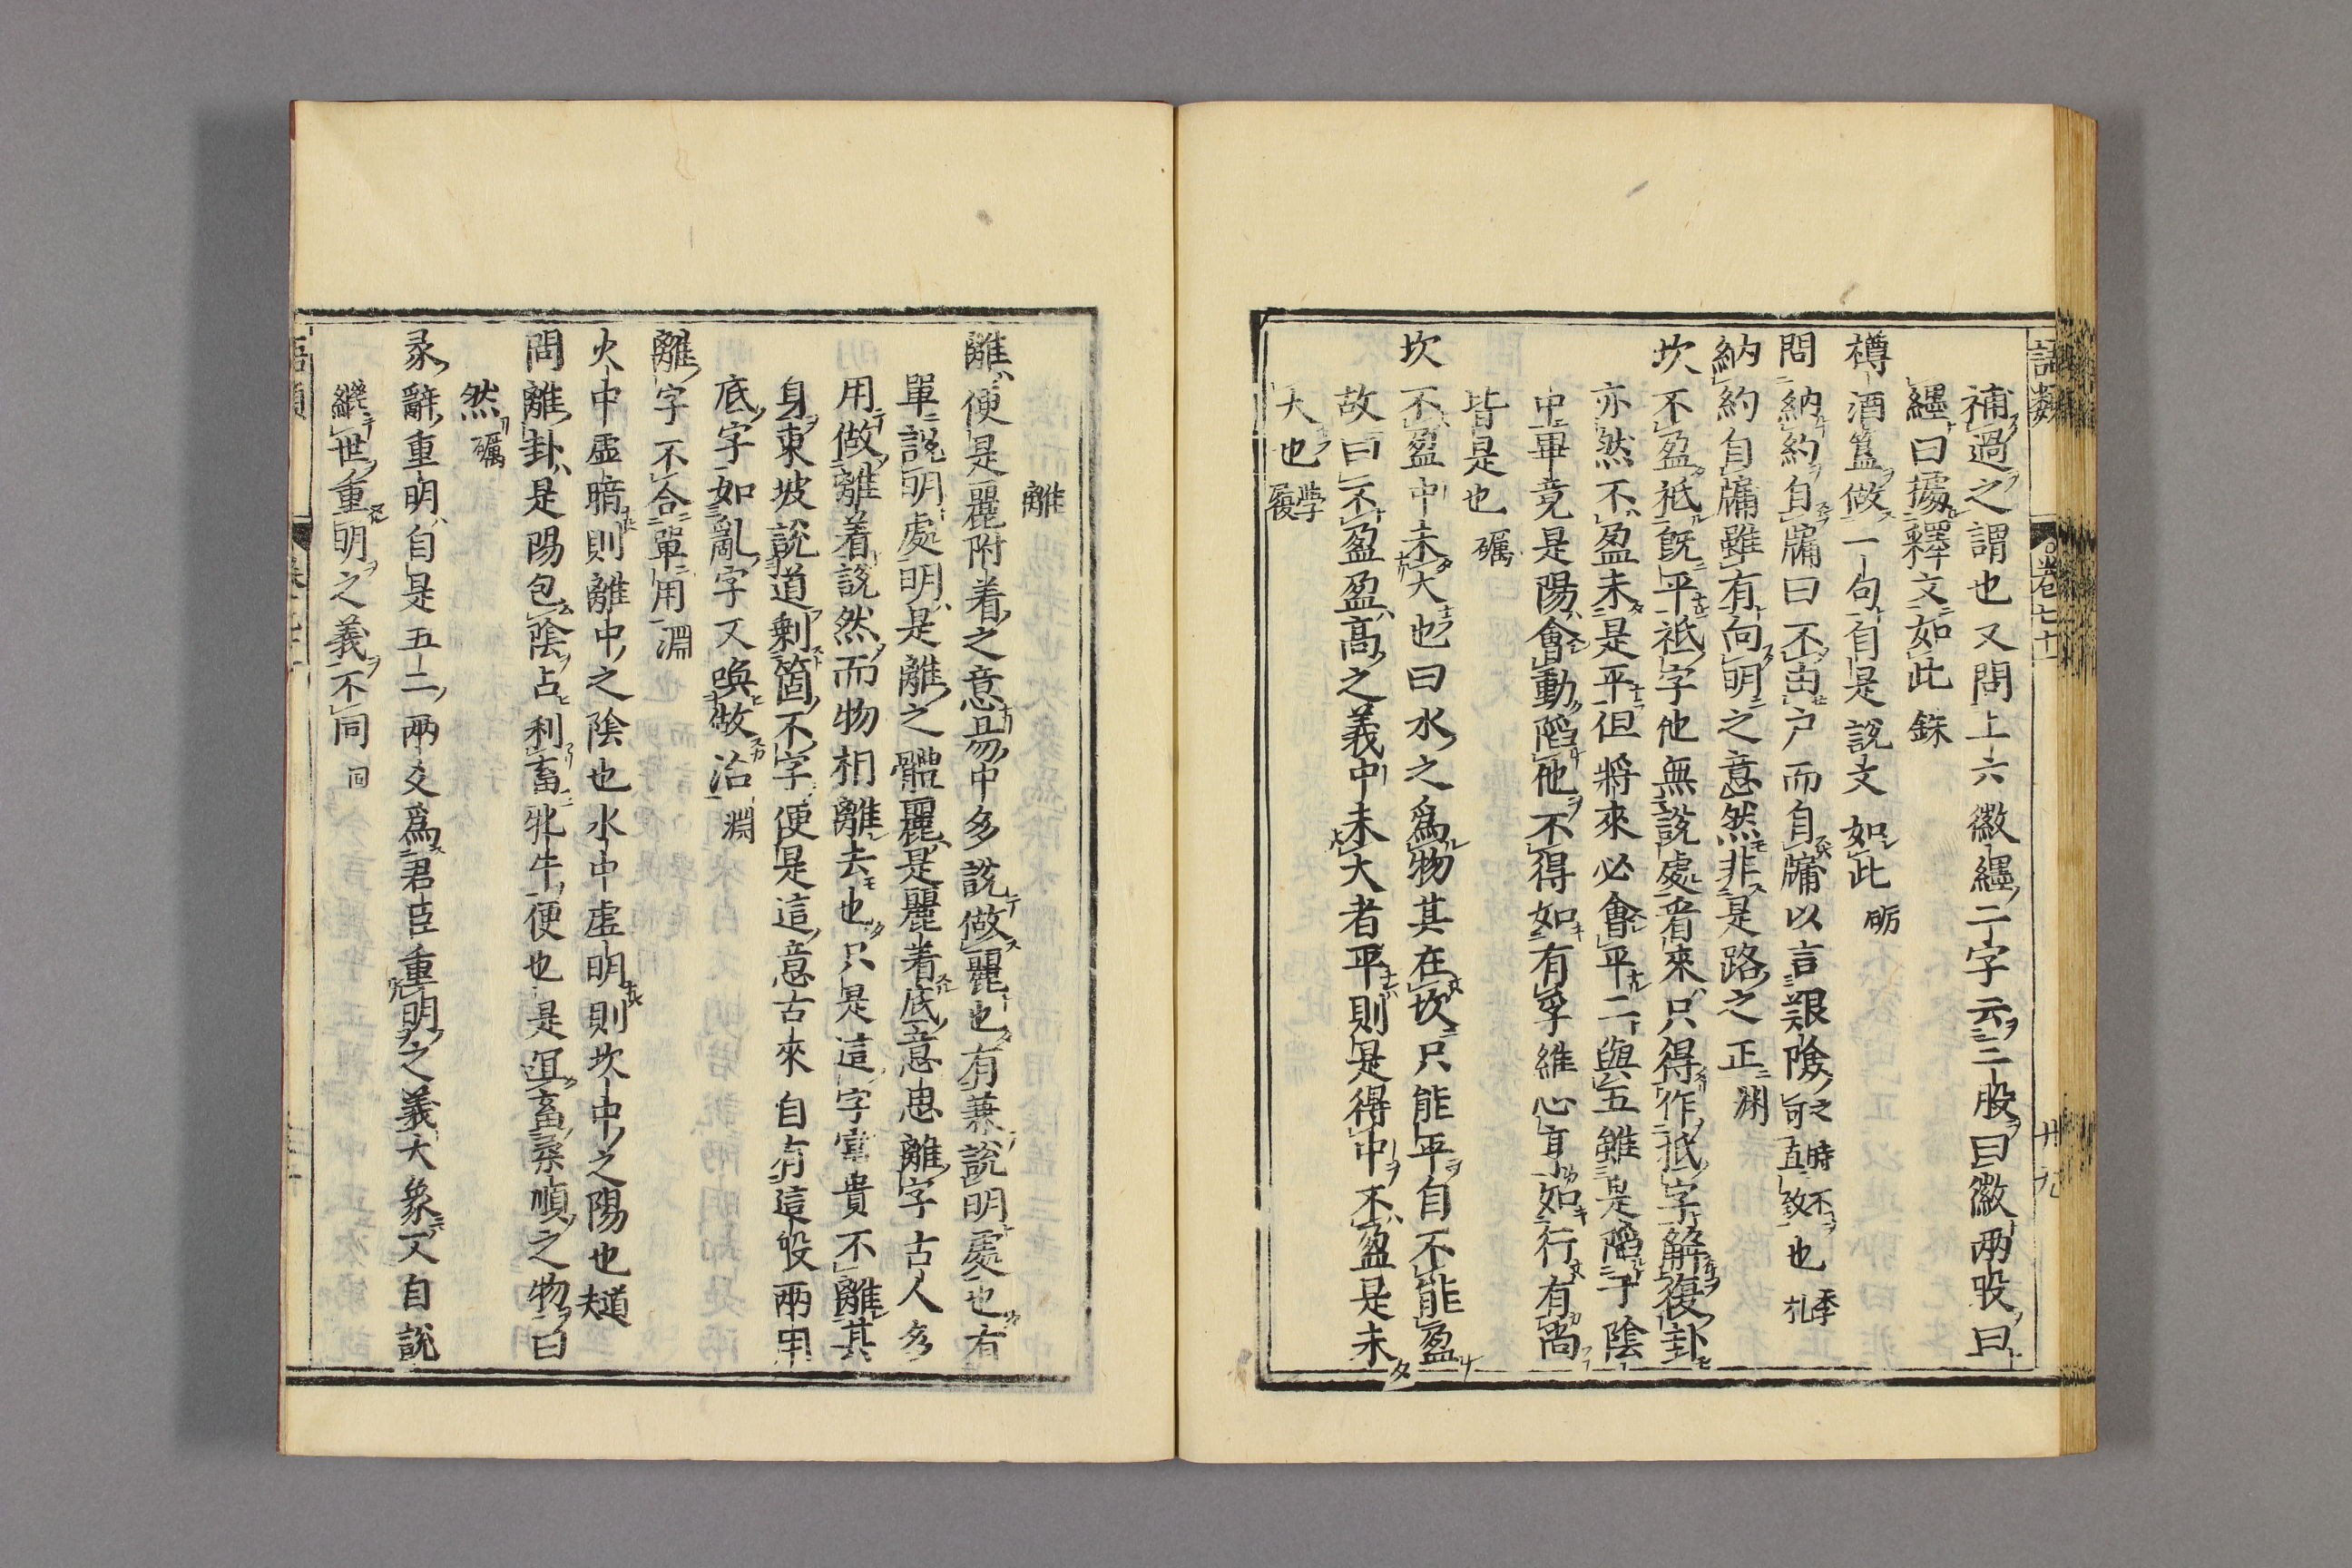 語類 卷七十 廿九
補過之謂也又問上六徽纆二字云三股曰徽兩股曰
纆曰據釋文如此 銖
樽酒簋做一句自是說文如此 砺
問納約自牖曰不由戶而自牖以言艱險之時不可直致也 季札
納約自牖雖有向明之意然非是路之正 淵
坎不盈祗既平祗字他無說處看來只得作抵字解復卦
亦然不盈未是平但將來必會平二與五雖是陷于陰
中畢竟是陽會動陷他不得如有孚維心亨如行有尚
皆是也 礪
坎不盈中未大也曰水之爲物其在坎只能平自不能盈
故曰不盈盈高之義中未大者平則是得中不盈是未
大也 學履
離
離便是麗附着之意易中多說做麗也有兼說明處也有
單說明處明是離之體麗是麗着底意思離字古人多
用做離着說然而物相離去也只是這字富貴不離其
身東坡說道剩箇不字便是這意古來自有這般兩用
底字如亂字又喚做治 淵
離字不合單用 淵
火中虛暗則離中之陰也水中虛明則坎中之陽也 道夫
問離卦是陽包陰占利畜牝牛便也是宜畜柔順之物曰
然 礪
彖辭重明自是五二兩爻爲君臣重明之義大象又自說
繼世重明之義不同 同